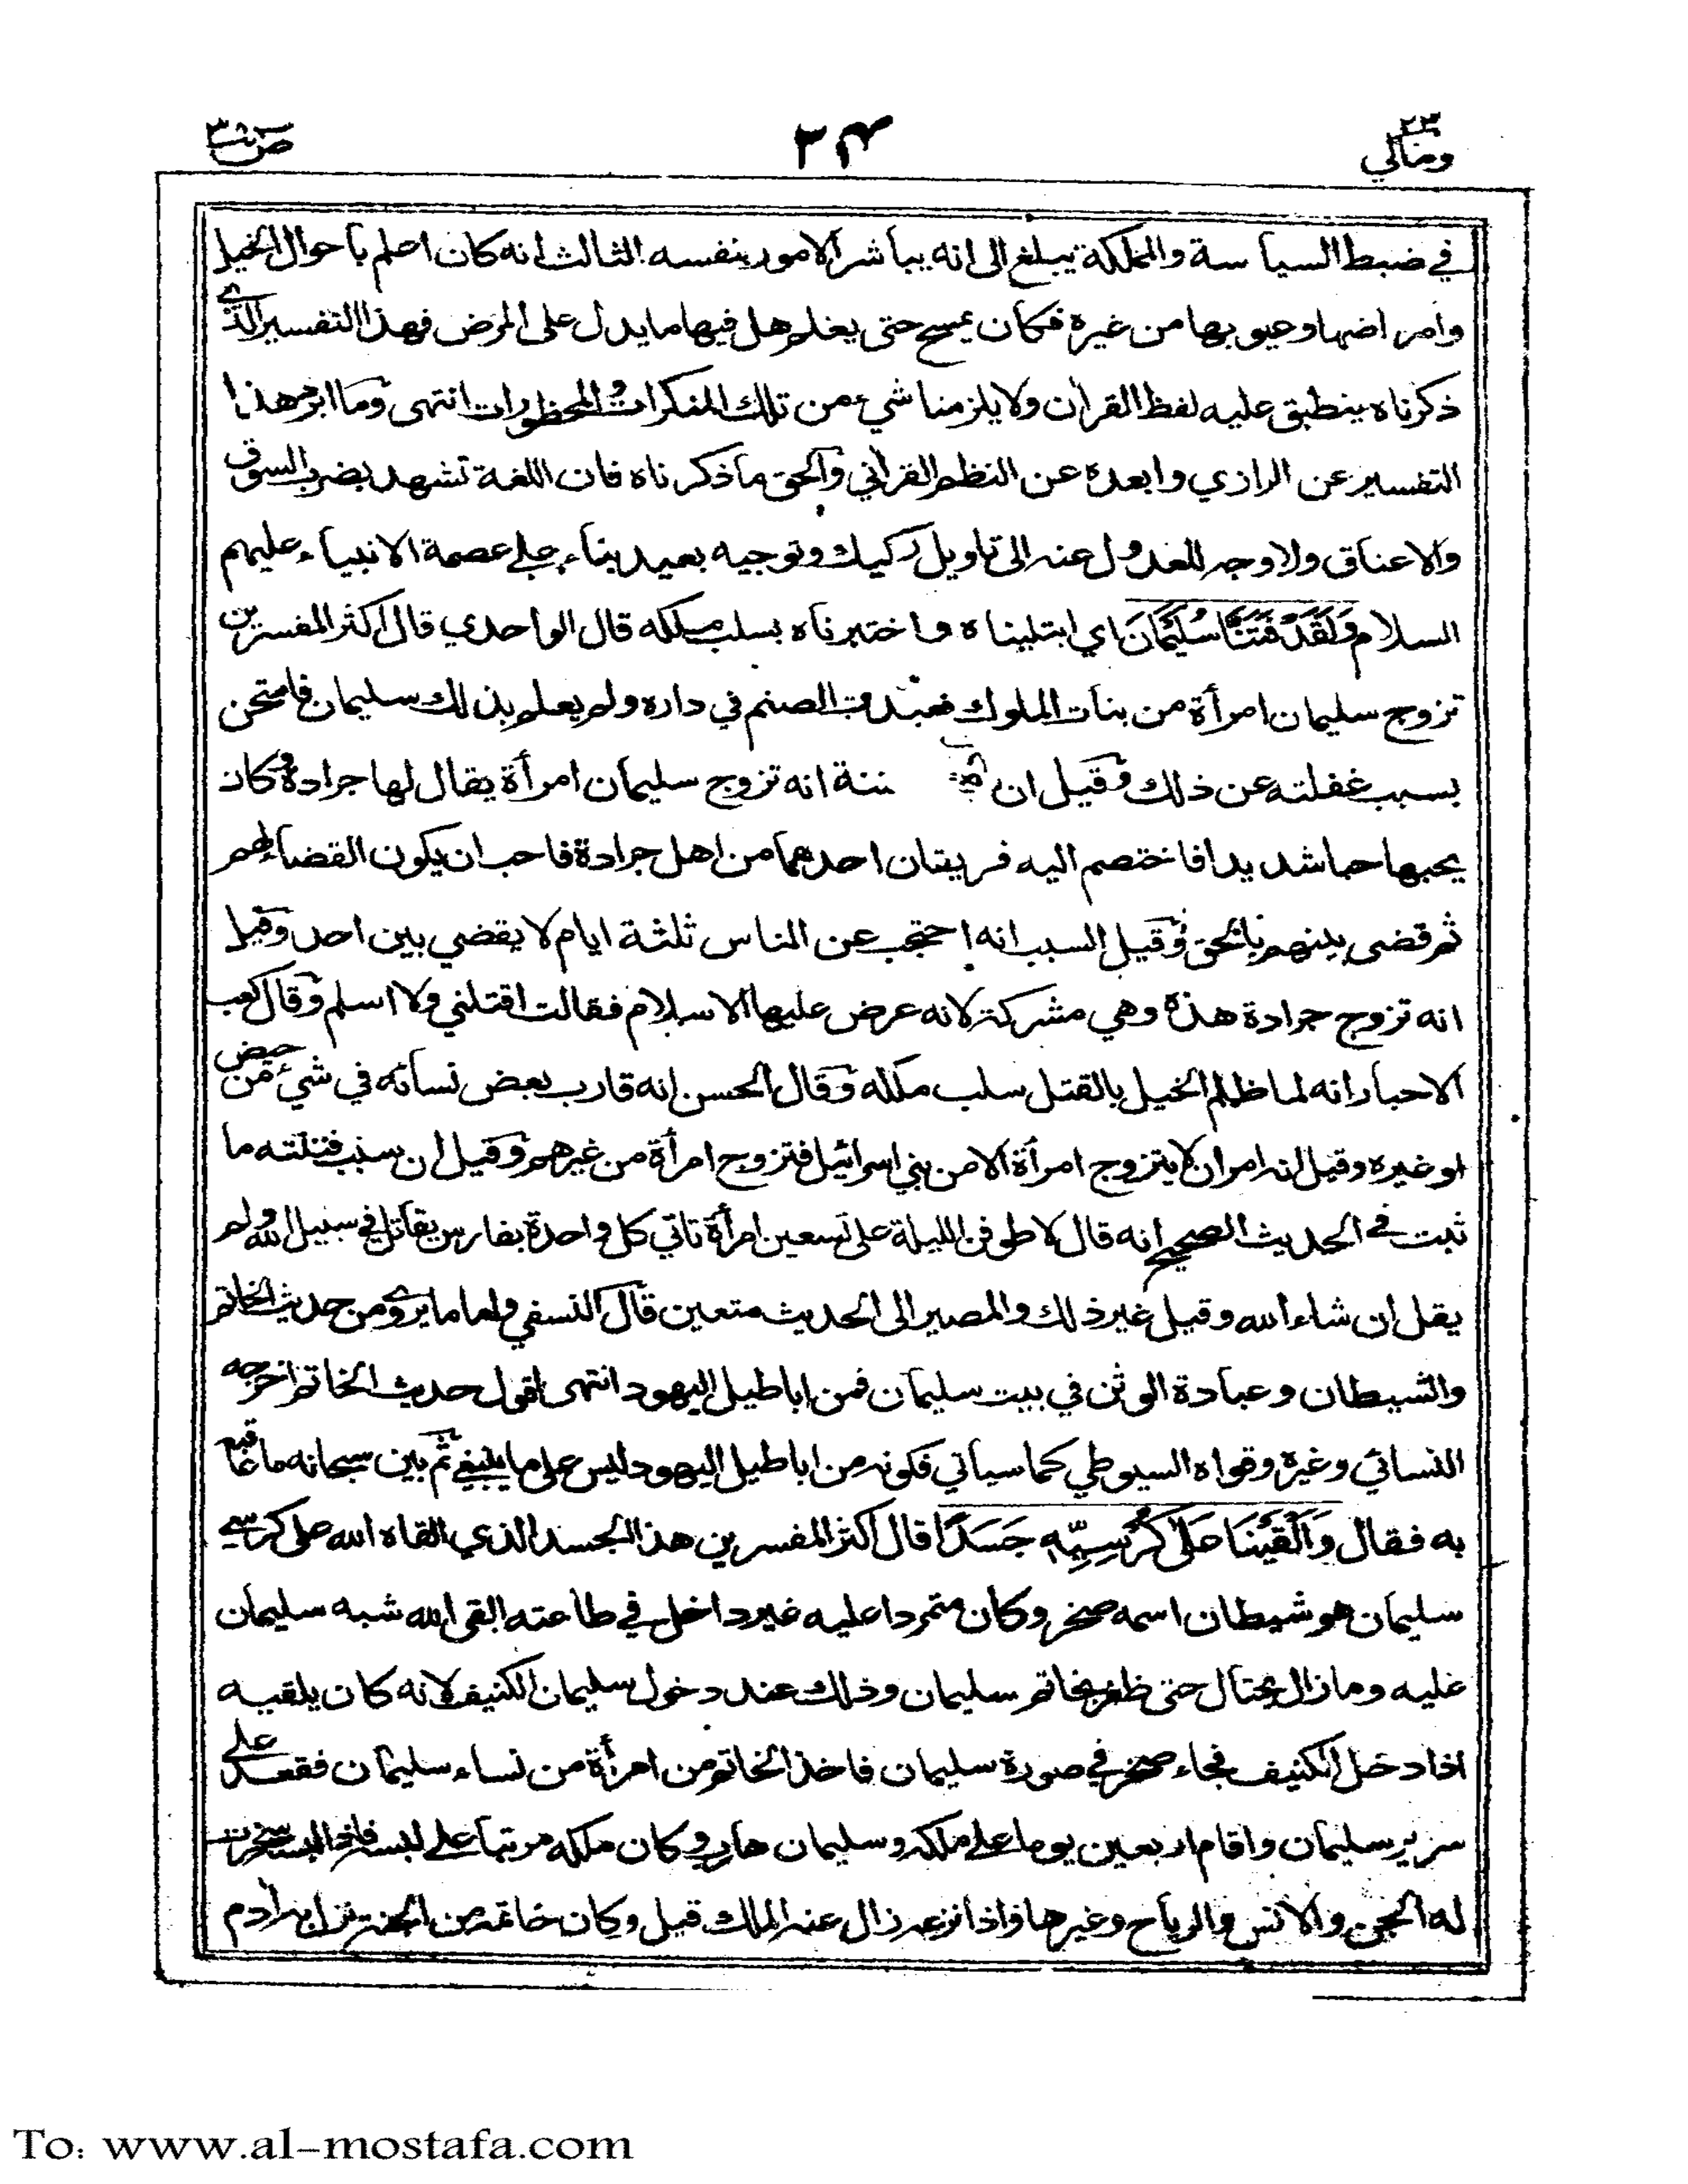 ومالي ٢٣
٣٤
ص ٣٨
في ضبط السياسة والمملكة يبلغ الى انه يباشر الامور بنفسه الثالث انه كان اعلم باحوال الخيل
وامراضها وعيوبها من غيره فكان يمسح حتى يعلم هل فيها ما يدل على المرض فهذا التفسير الذي
ذكرناه ينطبق عليه لفظ القرآن ولا يلزمنا شيء من تلك المنكرات والمحظورات انتهى وما ابرد هذا
التفسير عن الرازي وابعده عن النظم القرآني والحق ما ذكرناه فان اللغة تشهد بضرب السوق
والاعناق ولا وجه للعدول عنه الى تاويل ركيك وتوجيه بعيد بناء على عصمة الانبياء عليهم
السلام وَلَقَدْ فَتَنَّا سُلَيْمَانَ اي ابتليناه واختبرناه بسلب ملكه قال الواحدي قال اكثر المفسرين
تزوج سليمان امرأة من بنات الملوك فعبدت الصنم في داره ولم يعلم بذلك سليمان فامتحن
بسبب غفلته عن ذلك وقيل ان فتنة انه تزوج سليمان امرأة يقال لها جرادة وكان
يحبها حبا شديدا فاختصم اليه فريقان احدهما من اهل جرادة فاحب ان يكون القضاء لهم
ثم قضى بينهم بالحق وقيل السبب انه احتجب عن الناس ثلثة ايام لا يقضي بين احد وقيل
انه تزوج جرادة هذه وهي مشركة لانه عرض عليها الاسلام فقالت اقتلني ولا اسلم وقال كعب
الاحبار انه لما ظلم الخيل بالقتل سلب ملكه وقال الحسن انه قارب بعض نسائه في شيء من حيض
او غيره وقيل انه امر ان لا يتزوج امرأة الا من بني اسرائيل فتزوج امرأة من غيرهم وقيل ان سبب فتنته ما
ثبت في الحديث الصحيح انه قال لاطوفن الليلة على تسعين امرأة تاتي كل واحدة بفارس يقاتل في سبيل الله ولم
يقل ان شاء الله وقيل غير ذلك والمصير الى الحديث متعين قال النسفي واما ما يروى من حديث الخاتم
والشيطان وعبادة الوثن في بيت سليمان فمن اباطيل اليهود انتهى اقول حديث الخاتم اخرجه
النسائي وغيره وقواه السيوطي كما سياتي فكونه من اباطيل اليهود ليس على ما ينبغي ثم بين سبحانه ما عاقبه
به فقال وَأَلْقَيْنَا عَلَى كُرْسِيِّهِ جَسَدًا قال اكثر المفسرين هذا الجسد الذي القاه الله على كرسي
سليمان هو شيطان اسمه صخر وكان متمردا عليه غير داخل في طاعته القى الله شبه سليمان
عليه وما زال يحتال حتى ظفر بخاتم سليمان وذلك عند دخول سليمان الكنيف لانه كان يلقيه
اذا دخل الكنيف فجاء صخر في صورة سليمان فاخذ الخاتم من امرأة من نساء سليمان فقعد على
سرير سليمان واقام اربعين يوما على ملكه وسليمان هارب وكان ملكه مرتبا على لبسه فاذا لبسه سخرت
له الجن والانس والرياح وغيرها واذا نزعه زال عنه الملك قيل وكان خاتمه من الجنة نزل به آدم
To: www.al-mostafa.com